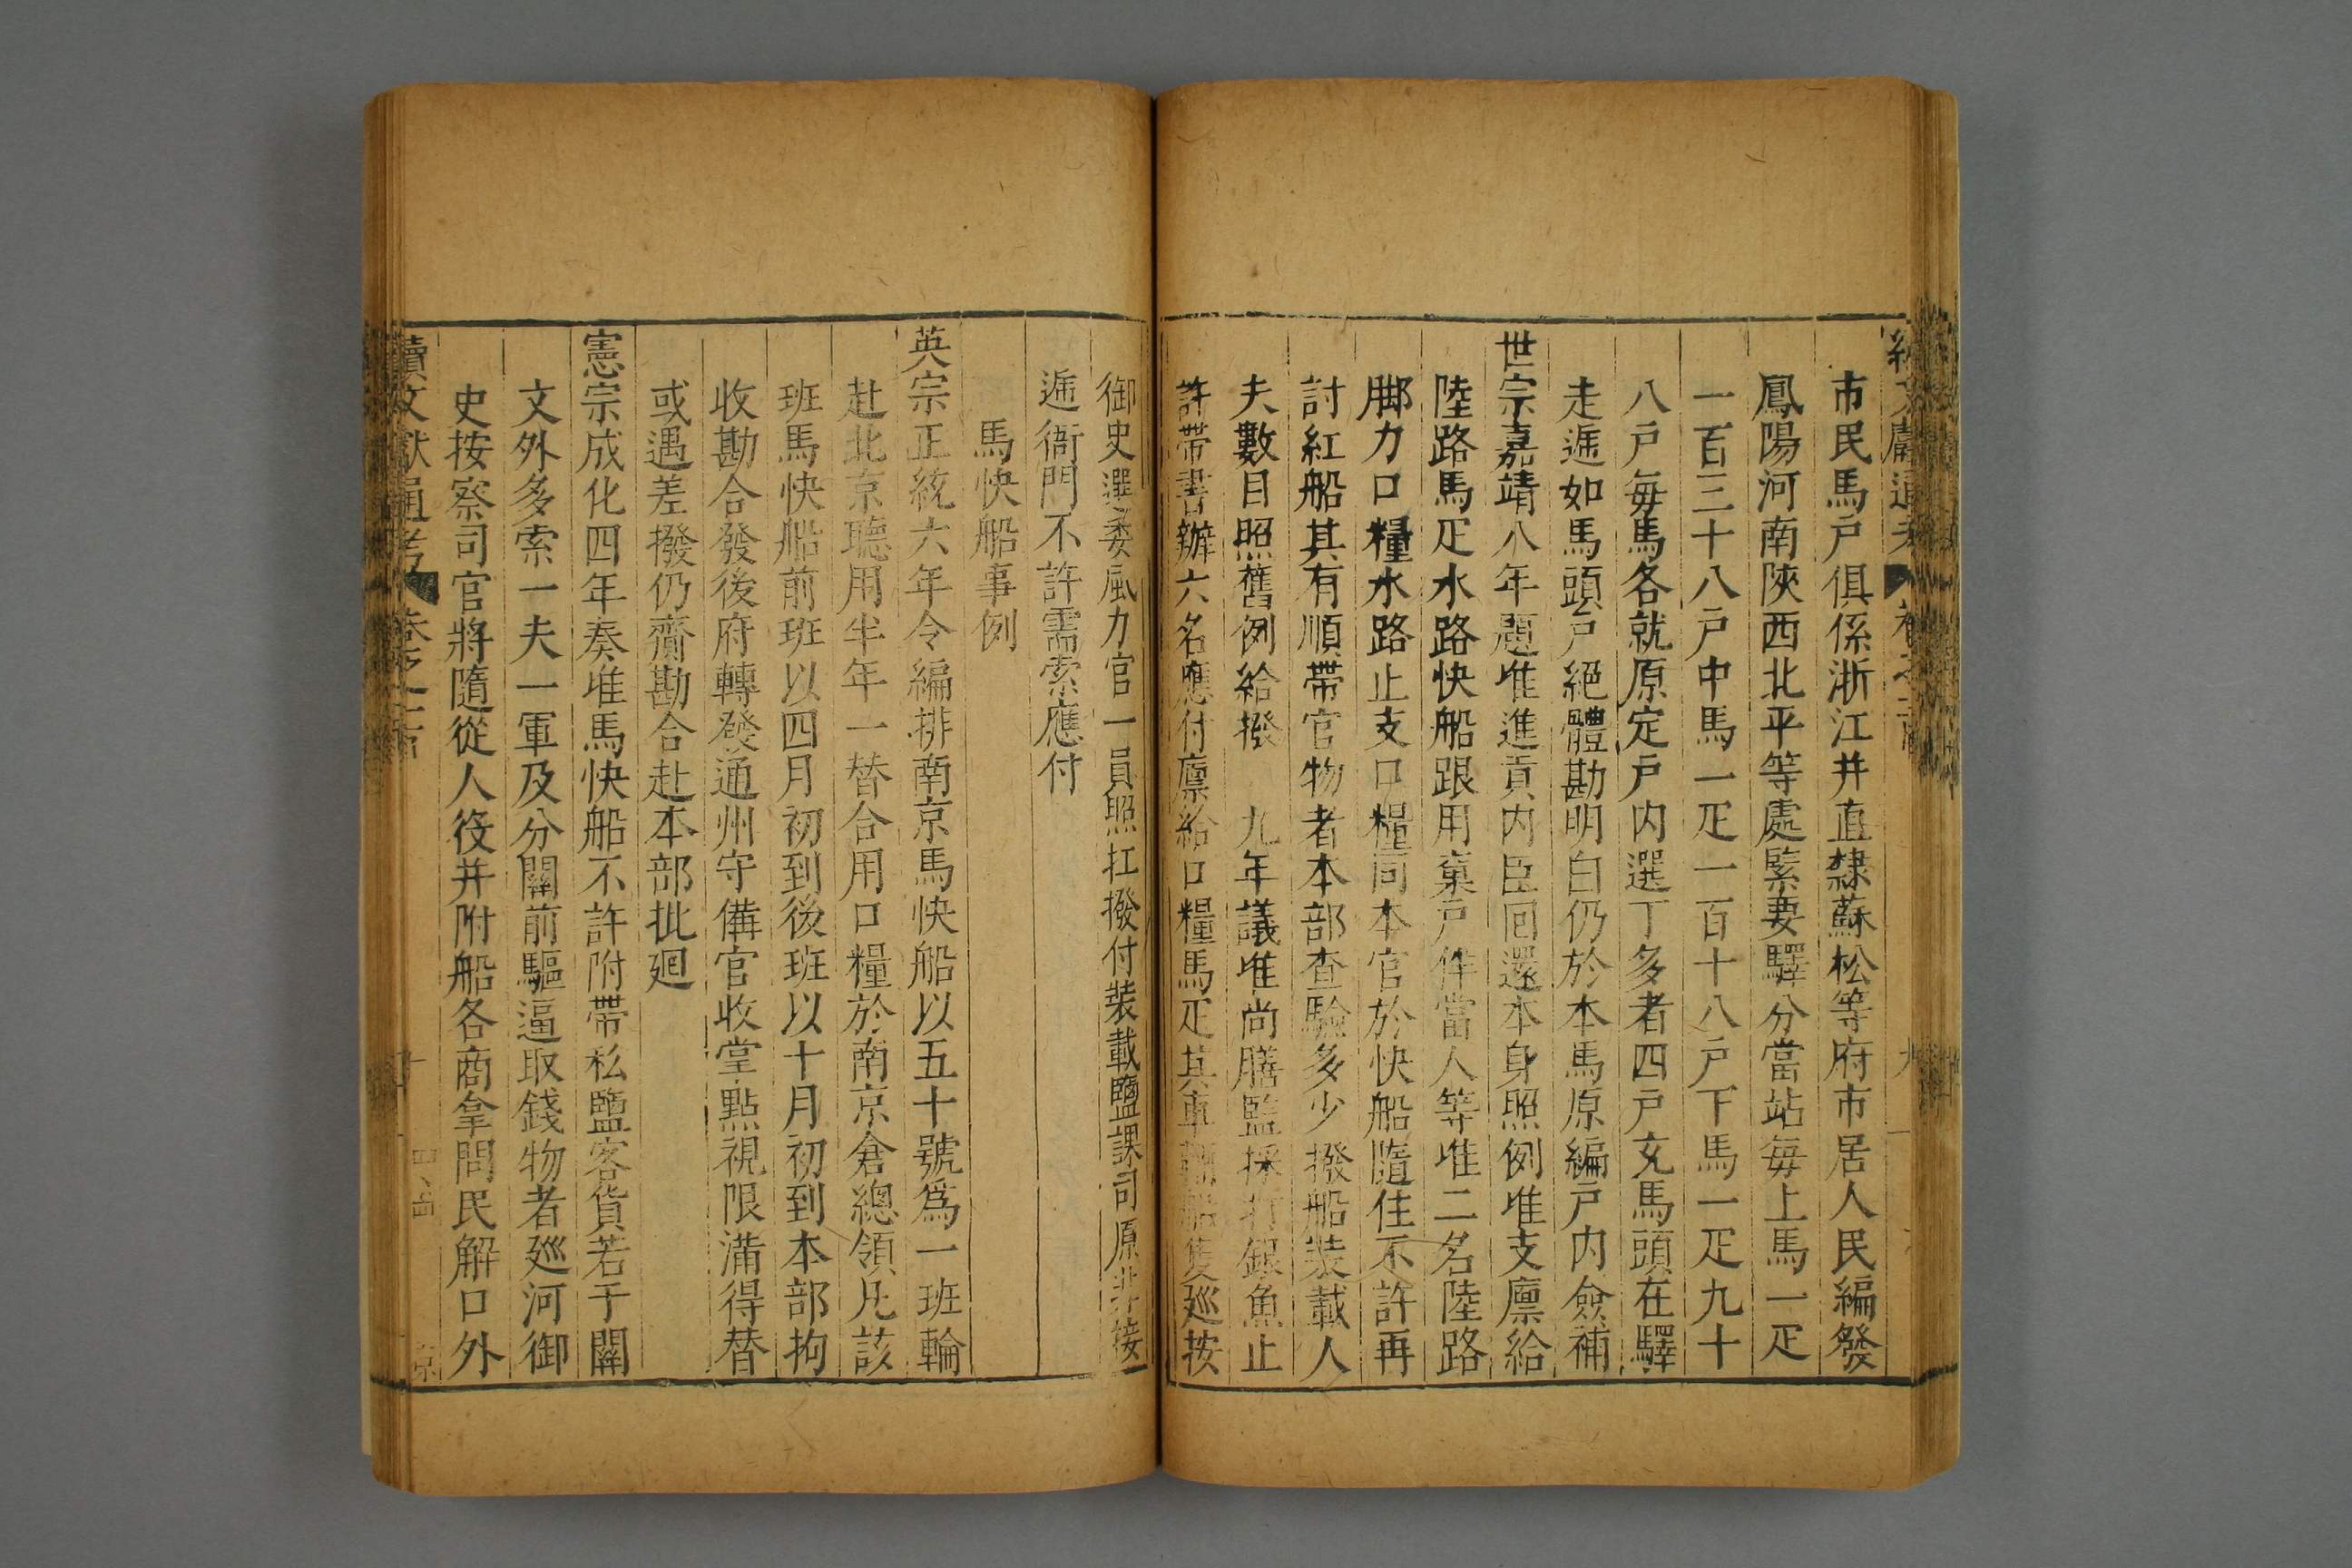 市民馬戸俱係浙江并直隸蘇松等府市居人民編發
鳳陽河南陝西北平等處緊要驛分當站每上馬一疋
一百三十八戸中馬一疋一百十八戸下馬一疋九十
八戸每馬各就原定戸内選丁多者四戸充馬頭在驛
走遞如馬頭戸絕體勘明白仍於本馬原編戸内僉補
世宗嘉靖八年題准進貢内臣回還本身照例准支廪給
陸路馬疋水路快船跟用㐮戸伴當人等准二名陸路
脚力口糧水路止支口糧同本官於快船隨住不許再
討紅船其有順帶官物者本部查驗多少撥船裝載人
夫數目照舊例給撥　九年議准尚膳監採打銀魚止
許帶書辦六名應付廪給口糧馬疋其車輛船隻廵按
御史選委風力官一員照扛撥付裝載鹽課司原非接
遞衙門不許需索應付
馬快船事例
英宗正統六年令編排南京馬快船以五十號爲一班輪
赴北京聽用半年一替合用口糧於南京倉總領凡該
班馬快船前班以四月初到後班以十月初到本部拘
收勘合發後府轉發通州守備官收堂點視限滿得替
或遇差撥仍齎勘合赴本部批廻
憲宗成化四年奏准馬快船不許附帶私鹽客貨若于關
文外多索一夫一軍及分關前驅逼取錢物者廵河御
史按察司官將隨從人役并附船各商拿問民解口外
續文獻通考　卷之二十